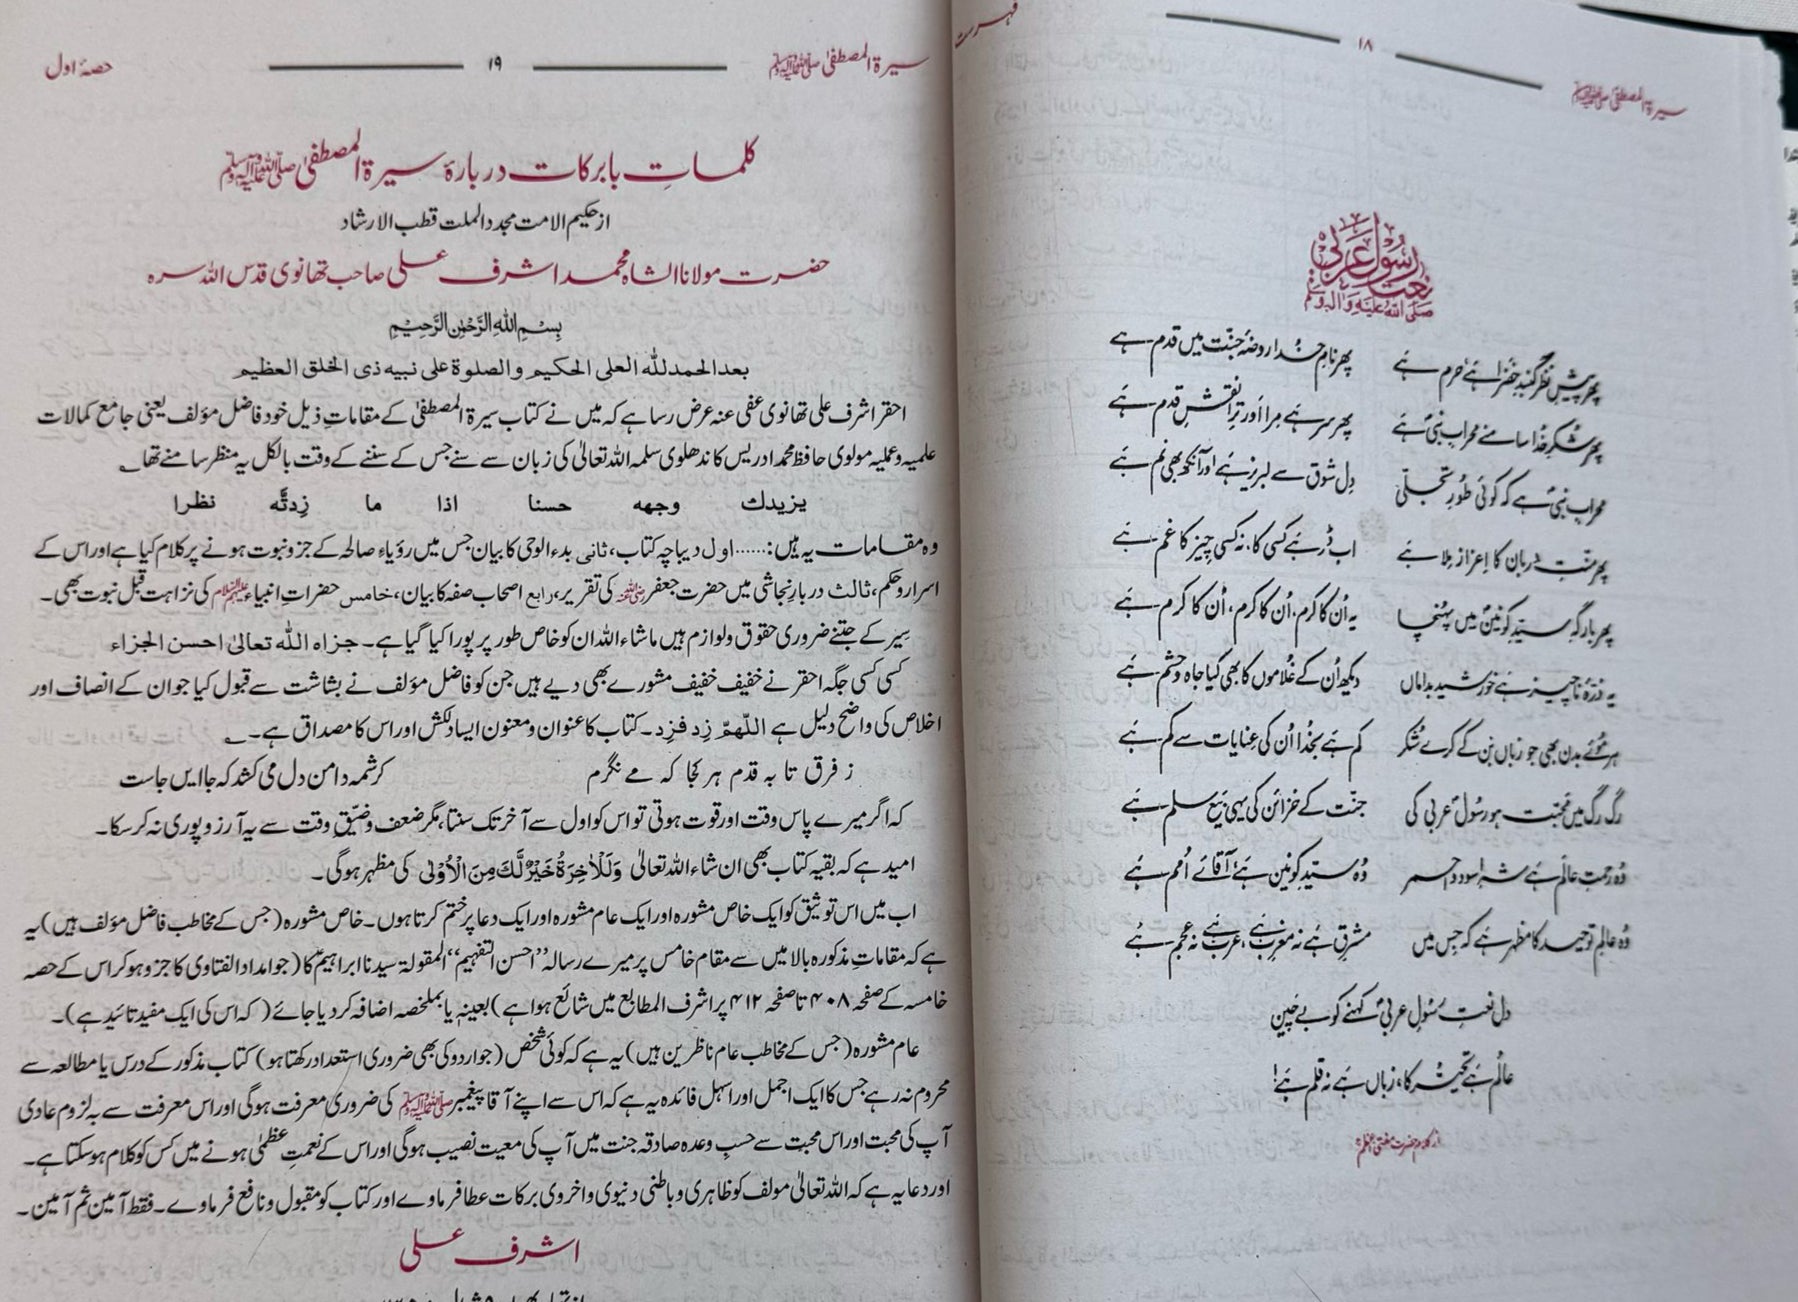 سیرۃ المصطفیٰ ﷺ ۱۸ فہرست
نعت رسول عربی
صلی اللہ علیہ وآلہ وسلم
پھر پیشِ نظر گنبدِ خضرا ہے حرم ہے پھر نامِ خدا روضۂ جنّت میں قدم ہے
پھر شکرِ خدا سامنے محرابِ نبیؐ ہے پھر سر ہے مرا اور ترا نقشِ قدم ہے
محرابِ نبیؐ ہے کہ کوئی طُورِ تجلّی دِل شوق سے لبریز ہے اور آنکھ بھی نم ہے
پھر منّتِ دربان کا اِعزاز مِلا ہے اب ڈر ہے کسی کا، نہ کسی چیز کا غم ہے
پھر بارگہِ سیّدِ کونینؐ میں پہنچا یہ اُن کا کرم، اُن کا کرم، اُن کا کرم ہے
یہ ذرّۂ ناچیز ہے خورشید بداماں دیکھ اُن کے غلاموں کا بھی کیا جاہ و حشم ہے
ہر مُوئے بدن بھی جو زباں بن کے کرے شکر کم ہے بخدا اُن کی عنایات سے کم ہے
رگ رگ میں محبّت ہو رسُولِ عربیؐ کی جنّت کے خزائن کی یہی بیعِ سلم ہے
وُہ رحمتِ عالَم ہے شہِ اسود و احمر وُہ سیّدِ کونین ہے آقائے اُمم ہے
وُہ عالمِ توحید کا مظہر ہے کہ جس میں مشرق ہے نہ مغرب ہے، عرب ہے نہ عجم ہے
دل نعتِ رسُولِ عربیؐ کہنے کو بے چین
عالَم ہے تحیّر کا، زباں ہے نہ قلم ہے!
از کلام حضرت مفتی اعظمؒ
سیرۃ المصطفیٰ ﷺ ۱۹ حصۂ اول
کلماتِ بابرکات دربارۂ سیرۃ المصطفیٰ ﷺ
از حکیم الامت مجدد الملت قطب الارشاد
حضرت مولانا الشاہ محمد اشرف علی صاحب تھانوی قدس اللہ سرہ
بِسْمِ اللهِ الرَّحْمٰنِ الرَّحِيْمِ
بعد الحمد للّٰه العلی الحكيم والصلوة علی نبيه ذی الخلق العظيم
احقر اشرف علی تھانوی عفی عنہ عرض رسا ہے کہ میں نے کتاب سیرۃ المصطفیٰ کے مقاماتِ ذیل خود فاضل مؤلف یعنی جامع کمالات
علمیہ و عملیہ مولوی حافظ محمد ادریس کاندھلوی سلمہ اللہ تعالیٰ کی زبان سے سنے جس کے سننے کے وقت بالکل یہ منظر سامنے تھا ؎
یزیدك وجهه حسنا اذا ما زِدتَّه نظرا
وہ مقامات یہ ہیں:...... اول دیباچہ کتاب، ثانی بدء الوحی کا بیان جس میں رؤیاء صالحہ کے جزو نبوت ہونے پر کلام کیا ہے اور اس کے
اسرار و حکم، ثالث دربارِ نجاشی میں حضرت جعفر رضی اللہ عنہ کی تقریر، رابع اصحاب صفہ کا بیان، خامس حضراتِ انبیاء علیہم السلام کی نزاہت قبل نبوت بھی۔
سِیر کے جتنے ضروری حقوق و لوازم ہیں ماشاء اللہ ان کو خاص طور پر پورا کیا گیا ہے۔ جزاہ اللّٰہ تعالیٰ احسن الجزاء
کسی کسی جگہ احقر نے خفیف خفیف مشورے بھی دیے ہیں جن کو فاضل مؤلف نے بشاشت سے قبول کیا جو ان کے انصاف اور
اخلاص کی واضح دلیل ہے اللّٰهمّ زِد فزِد۔ کتاب کا عنوان و معنون ایسا دلکش اور اس کا مصداق ہے۔ ؎
ز فرق تا بہ قدم ہر کجا کہ مے نگرم کرشمہ دامن دل می کشد کہ جا ایں جاست
کہ اگر میرے پاس وقت اور قوت ہوتی تو اس کو اول سے آخر تک سنتا، مگر ضعف و ضیقِ وقت سے یہ آرزو پوری نہ کر سکا۔
امید ہے کہ بقیہ کتاب بھی ان شاء اللہ تعالیٰ وَلَلْاٰخِرَةُ خَيْرٌ لَّكَ مِنَ الْاُوْلٰى کی مظہر ہوگی۔
اب میں اس توثیق کو ایک خاص مشورہ اور ایک عام مشورہ اور ایک دعا پر ختم کرتا ہوں۔ خاص مشورہ (جس کے مخاطب فاضل مؤلف ہیں) یہ
ہے کہ مقاماتِ مذکورہ بالا میں سے مقام خامس پر میرے رسالہ ''احسن التفہیم'' المقولۃ سیدنا ابراہیمؑ کا (جو امداد الفتاوی کا جزو ہو کر اس کے حصہ
خامسہ کے صفحہ ۴۰۸ تا صفحہ ۴۱۲ پر اشرف المطابع میں شائع ہوا ہے) بعینہٖ یا بملخصہ اضافہ کر دیا جائے (کہ اس کی ایک مفید تائید ہے)۔
عام مشورہ (جس کے مخاطب عام ناظرین ہیں) یہ ہے کہ کوئی شخص (جو اردو کی بھی ضروری استعداد رکھتا ہو) کتاب مذکور کے درس یا مطالعہ سے
محروم نہ رہے جس کا ایک اجمل اور اسہل فائدہ یہ ہے کہ اس سے اپنے آقا پیغمبر ﷺ کی ضروری معرفت ہوگی اور اس معرفت سے بہ لزوم عادی
آپ کی محبت اور اس محبت سے حسبِ وعدہ صادقہ جنت میں آپ کی معیت نصیب ہوگی اور اس کے نعمتِ عظمٰی ہونے میں کس کو کلام ہو سکتا ہے۔
اور دعا یہ ہے کہ اللہ تعالیٰ مولف کو ظاہری و باطنی دنیوی و اخروی برکات عطا فرماوے اور کتاب کو مقبول و نافع فرماوے۔ فقط آمین ثم آمین۔
اشرف علی